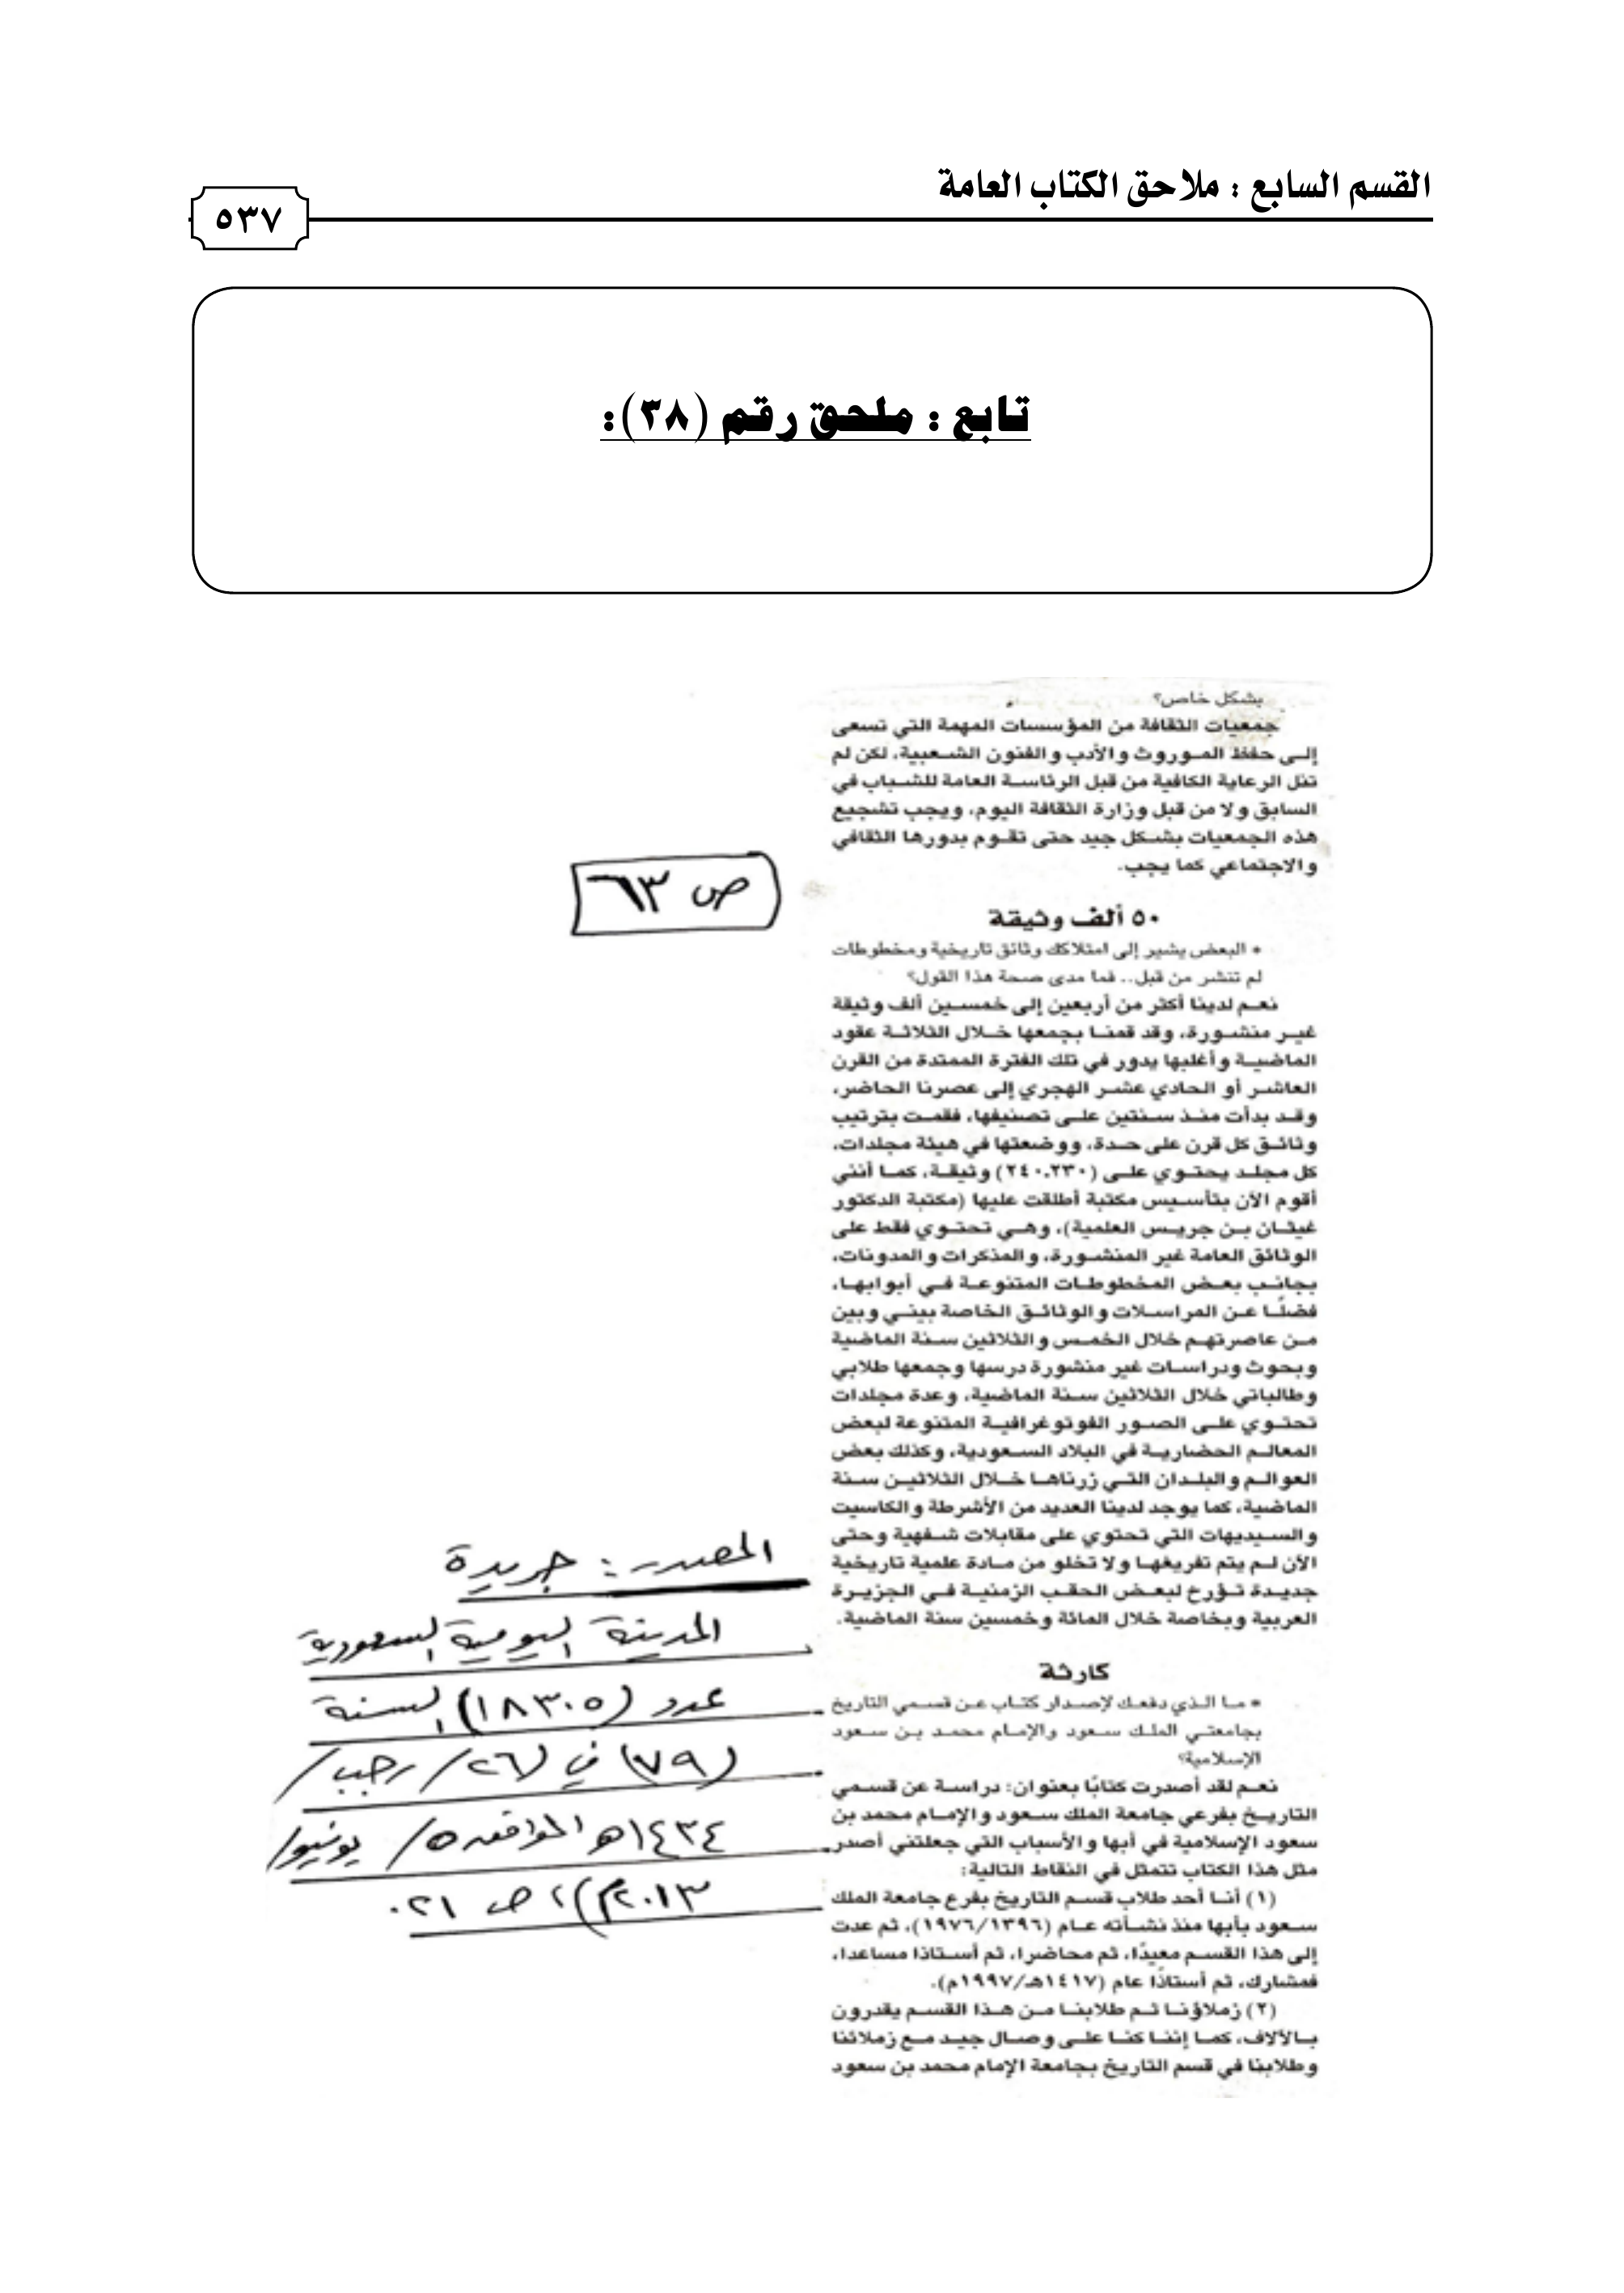 القسم السابع : ملاحق الكتاب العامة
٥٣٧
تابع : ملحق رقم (٣٨):
بشكل خاص؟
جمعيات الثقافة من المؤسسات المهمة التي تسعى
إلى حفظ الموروث والأدب والفنون الشعبية، لكن لم
تنل الرعاية الكافية من قبل الرئاسة العامة للشباب في
السابق ولا من قبل وزارة الثقافة اليوم، ويجب تشجيع
هذه الجمعيات بشكل جيد حتى تقوم بدورها الثقافي
والاجتماعي كما يجب.
٥٠ ألف وثيقة
* البعض يشير إلى امتلاكك وثائق تاريخية ومخطوطات
لم تنشر من قبل.. فما مدى صحة هذا القول؟
نعم لدينا أكثر من أربعين إلى خمسين ألف وثيقة
غير منشورة، وقد قمنا بجمعها خلال الثلاثة عقود
الماضية وأغلبها يدور في تلك الفترة الممتدة من القرن
العاشر أو الحادي عشر الهجري إلى عصرنا الحاضر،
وقد بدأت منذ سنتين على تصنيفها، فقمت بترتيب
وثائق كل قرن على حدة، ووضعتها في هيئة مجلدات،
كل مجلد يحتوي على (٢٤٠.٢٣٠) وثيقة، كما أنني
أقوم الآن بتأسيس مكتبة أطلقت عليها (مكتبة الدكتور
غيثان بن جريس العلمية)، وهي تحتوي فقط على
الوثائق العامة غير المنشورة، والمذكرات والمدونات،
بجانب بعض المخطوطات المتنوعة في أبوابها،
فضلًا عن المراسلات والوثائق الخاصة بيني وبين
من عاصرتهم خلال الخمس والثلاثين سنة الماضية
وبحوث ودراسات غير منشورة درسها وجمعها طلابي
وطالباتي خلال الثلاثين سنة الماضية، وعدة مجلدات
تحتوي على الصور الفوتوغرافية المتنوعة لبعض
المعالم الحضارية في البلاد السعودية، وكذلك بعض
العوالم والبلدان التي زرناها خلال الثلاثين سنة
الماضية، كما يوجد لدينا العديد من الأشرطة والكاسيت
والسيديهات التي تحتوي على مقابلات شفهية وحتى
الآن لم يتم تفريغها ولا تخلو من مادة علمية تاريخية
جديدة تؤرخ لبعض الحقب الزمنية في الجزيرة
العربية وبخاصة خلال المائة وخمسين سنة الماضية.
كارثة
* ما الذي دفعك لإصدار كتاب عن قسمي التاريخ
بجامعتي الملك سعود والإمام محمد بن سعود
الإسلامية؟
نعم لقد أصدرت كتابًا بعنوان: دراسة عن قسمي
التاريخ بفرعي جامعة الملك سعود والإمام محمد بن
سعود الإسلامية في أبها والأسباب التي جعلتني أصدر
مثل هذا الكتاب تتمثل في النقاط التالية:
(١) أنا أحد طلاب قسم التاريخ بفرع جامعة الملك
سعود بأبها منذ نشأته عام (١٩٧٦/١٣٩٦)، ثم عدت
إلى هذا القسم معيدًا، ثم محاضرا، ثم أستاذا مساعدا،
فمشارك، ثم أستاذًا عام (١٤١٧هـ/١٩٩٧م).
(٢) زملاؤنا ثم طلابنا من هذا القسم يقدرون
بالآلاف، كما إننا كنا على وصال جيد مع زملائنا
وطلابنا في قسم التاريخ بجامعة الإمام محمد بن سعود
ص ٦٣
المصدر : جريدة
المدينة اليومية السعودية
عدد (١٨٣٠٥) السنة
(٧٩) في (٢٦/ رجب/
١٤٣٤هـ الموافق ٥/ يونيو/
٢٠١٣م)، ص ٢١.